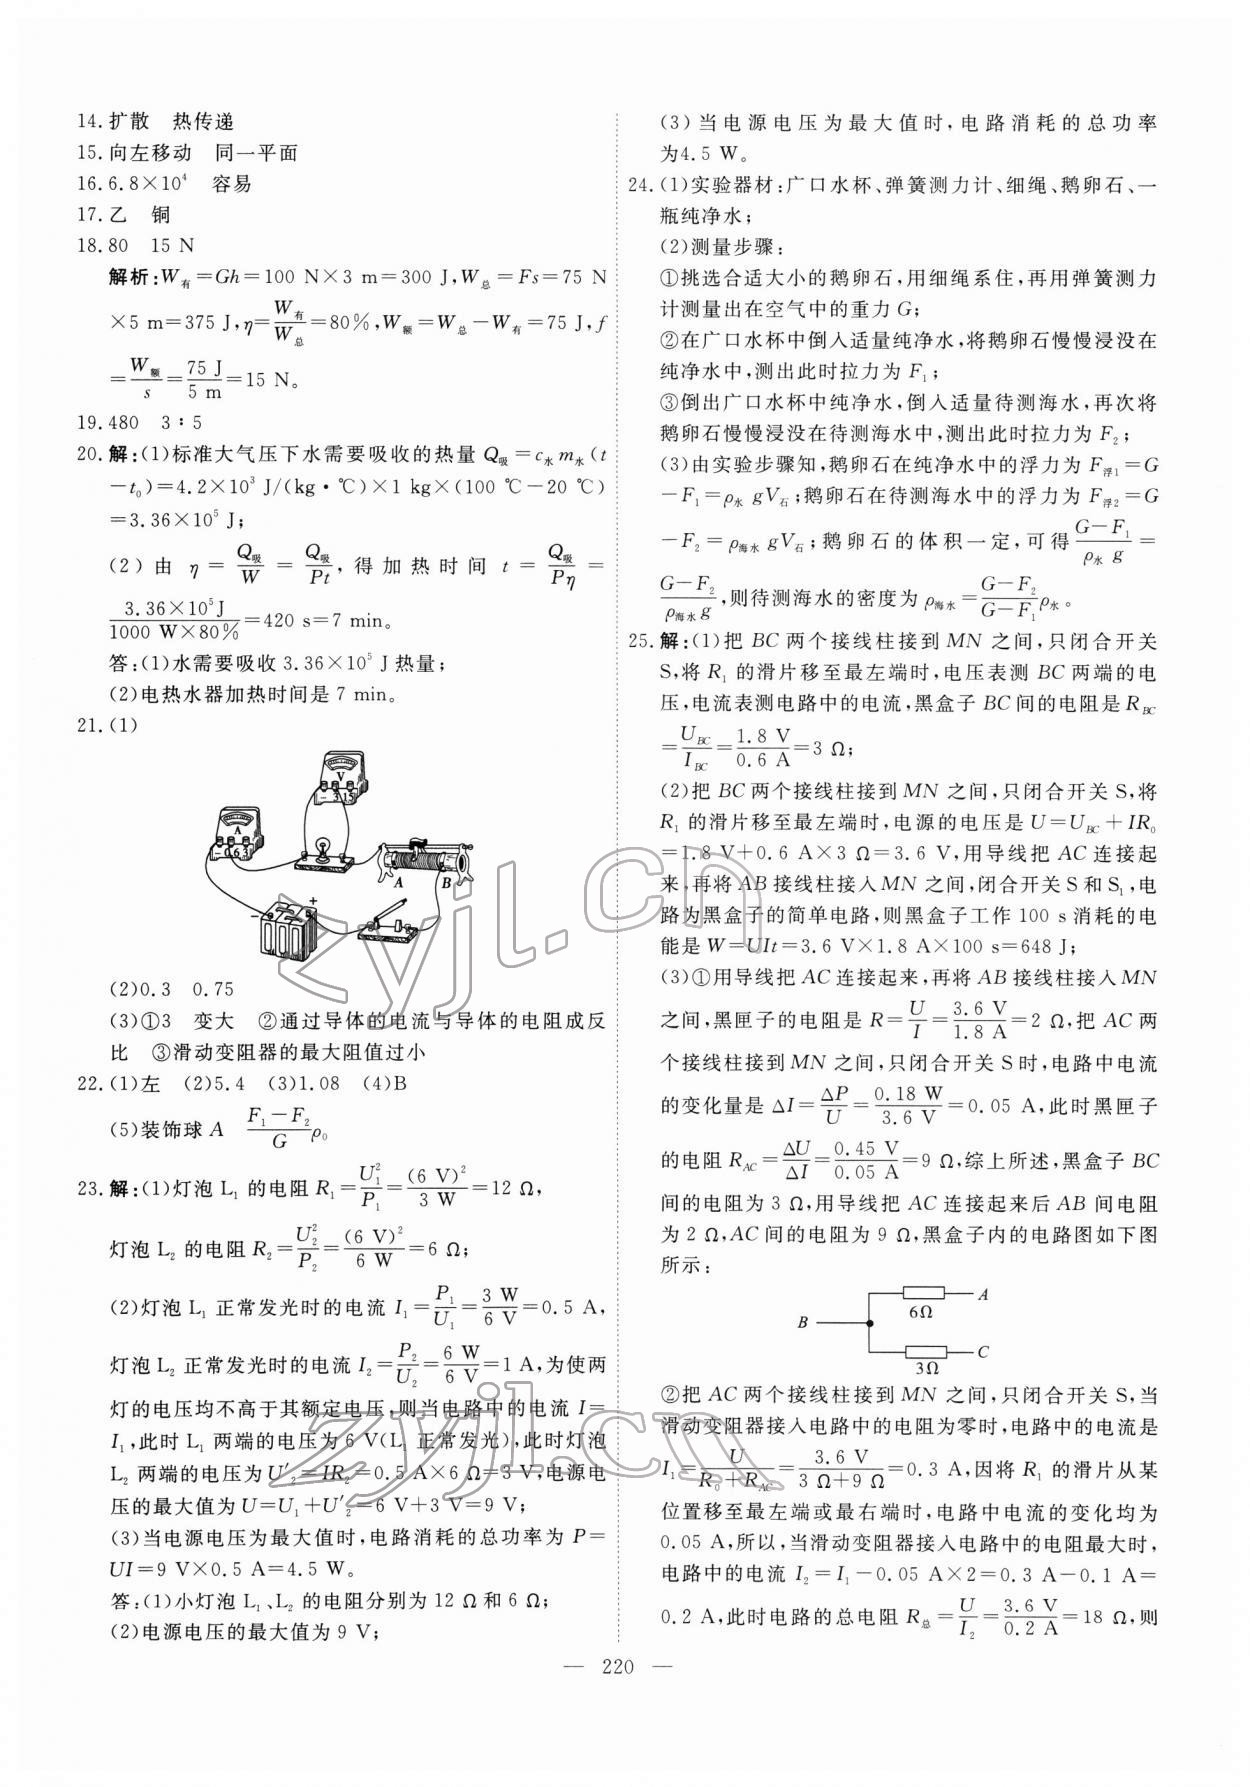 14.扩散　热传递
15.向左移动　同一平面
16.6.8×10⁴　容易
17.乙　铜
18.80　15 N
解析:W有=Gh=100 N×3 m=300 J,W总=Fs=75 N
×5 m=375 J,η=W有/W总=80%,W额=W总-W有=75 J,f
=W额/s=75 J/5 m=15 N。
19.480　3∶5
20.解:(1)标准大气压下水需要吸收的热量 Q吸=c水m水(t
-t₀)=4.2×10³ J/(kg·℃)×1 kg×(100 ℃-20 ℃)
=3.36×10⁵ J;
(2)由 η=Q吸/W=Q吸/Pt,得加热时间 t=Q吸/Pη=
3.36×10⁵J/1000 W×80%=420 s=7 min。
答:(1)水需要吸收 3.36×10⁵ J 热量;
(2)电热水器加热时间是 7 min。
21.(1)
V
- 3 15
A
-0.6 3
A B
- +
(2)0.3　0.75
(3)①3　变大　②通过导体的电流与导体的电阻成反
比　③滑动变阻器的最大阻值过小
22.(1)左　(2)5.4　(3)1.08　(4)B
(5)装饰球 A　F₁-F₂/G ρ₀
23.解:(1)灯泡 L₁ 的电阻 R₁=U₁²/P₁=(6 V)²/3 W=12 Ω,
灯泡 L₂ 的电阻 R₂=U₂²/P₂=(6 V)²/6 W=6 Ω;
(2)灯泡 L₁ 正常发光时的电流 I₁=P₁/U₁=3 W/6 V=0.5 A,
灯泡 L₂ 正常发光时的电流 I₂=P₂/U₂=6 W/6 V=1 A,为使两
灯的电压均不高于其额定电压,则当电路中的电流 I=
I₁,此时 L₁ 两端的电压为 6 V(L₁ 正常发光),此时灯泡
L₂ 两端的电压为 U′₂=IR₂=0.5 A×6 Ω=3 V,电源电
压的最大值为 U=U₁+U′₂=6 V+3 V=9 V;
(3)当电源电压为最大值时,电路消耗的总功率为 P=
UI=9 V×0.5 A=4.5 W。
答:(1)小灯泡 L₁、L₂ 的电阻分别为 12 Ω 和 6 Ω;
(2)电源电压的最大值为 9 V;
(3)当电源电压为最大值时,电路消耗的总功率
为4.5 W。
24.(1)实验器材:广口水杯、弹簧测力计、细绳、鹅卵石、一
瓶纯净水;
(2)测量步骤:
①挑选合适大小的鹅卵石,用细绳系住,再用弹簧测力
计测量出在空气中的重力 G;
②在广口水杯中倒入适量纯净水,将鹅卵石慢慢浸没在
纯净水中,测出此时拉力为 F₁;
③倒出广口水杯中纯净水,倒入适量待测海水,再次将
鹅卵石慢慢浸没在待测海水中,测出此时拉力为 F₂;
(3)由实验步骤知,鹅卵石在纯净水中的浮力为 F浮1=G
-F₁=ρ水 gV石;鹅卵石在待测海水中的浮力为 F浮2=G
-F₂=ρ海水 gV石;鹅卵石的体积一定,可得G-F₁/ρ水 g=
G-F₂/ρ海水g,则待测海水的密度为 ρ海水=G-F₂/G-F₁ρ水。
25.解:(1)把 BC 两个接线柱接到 MN 之间,只闭合开关
S,将 R₁ 的滑片移至最左端时,电压表测 BC 两端的电
压,电流表测电路中的电流,黑盒子 BC 间的电阻是 R_BC
=U_BC/I_BC=1.8 V/0.6 A=3 Ω;
(2)把 BC 两个接线柱接到 MN 之间,只闭合开关 S,将
R₁ 的滑片移至最左端时,电源的电压是 U=U_BC+IR₀
=1.8 V+0.6 A×3 Ω=3.6 V,用导线把 AC 连接起
来,再将 AB 接线柱接入 MN 之间,闭合开关 S 和 S₁,电
路为黑盒子的简单电路,则黑盒子工作 100 s 消耗的电
能是 W=UIt=3.6 V×1.8 A×100 s=648 J;
(3)①用导线把 AC 连接起来,再将 AB 接线柱接入 MN
之间,黑匣子的电阻是 R=U/I=3.6 V/1.8 A=2 Ω,把 AC 两
个接线柱接到 MN 之间,只闭合开关 S 时,电路中电流
的变化量是 ΔI=ΔP/U=0.18 W/3.6 V=0.05 A,此时黑匣子
的电阻 R_AC=ΔU/ΔI=0.45 V/0.05 A=9 Ω,综上所述,黑盒子 BC
间的电阻为 3 Ω,用导线把 AC 连接起来后 AB 间电阻
为 2 Ω,AC 间的电阻为 9 Ω,黑盒子内的电路图如下图
所示:
A
6Ω
B
C
3Ω
②把 AC 两个接线柱接到 MN 之间,只闭合开关 S,当
滑动变阻器接入电路中的电阻为零时,电路中的电流是
I₁=U/R₀+R_AC=3.6 V/3 Ω+9 Ω=0.3 A,因将 R₁ 的滑片从某
位置移至最左端或最右端时,电路中电流的变化均为
0.05 A,所以,当滑动变阻器接入电路中的电阻最大时,
电路中的电流 I₂=I₁-0.05 A×2=0.3 A-0.1 A=
0.2 A,此时电路的总电阻 R总=U/I₂=3.6 V/0.2 A=18 Ω,则
— 220 —
zyjl.cn
zyjl.cn